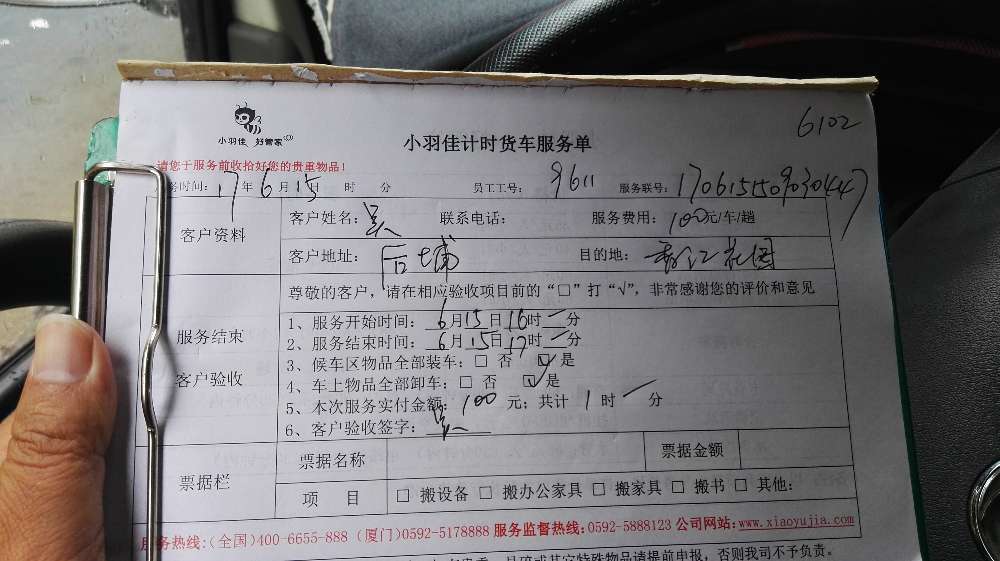 6102
小羽佳 好管家
小羽佳计时货车服务单
请您于服务前收拾好您的贵重物品!
务时间: 17 年 6 月 15 日 时 分 员工工号: 9611 服务联号: 1706151509030447
客户资料
客户姓名: 吴 联系电话: 服务费用: 100元/车/趟
客户地址: 后埔 目的地: 香江花园
尊敬的客户，请在相应验收项目前的“□”打“√”，非常感谢您的评价和意见
服务结束
客户验收
1、服务开始时间: 6月15日16时 一分
2、服务结束时间: 6月15日17时 一分
3、候车区物品全部装车: □ 否 ☑ 是
4、车上物品全部卸车: □ 否 ☑ 是
5、本次服务实付金额: 100 元; 共计 1 时 一 分
6、客户验收签字: 吴
票据栏
票据名称 票据金额
项 目 □ 搬设备 □ 搬办公家具 □ 搬家具 □ 搬书 □ 其他:
服务热线:(全国)400-6655-888 (厦门)0592-5178888 服务监督热线:0592-5888123 公司网站:www.xiaoyujia.com
其它特殊物品请提前申报，否则我司不予负责。